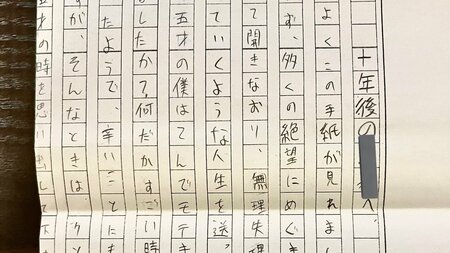 十年後の へ。
よくこの手紙が見れまし
ず、多くの絶望にめぐ
て開きなおり、無理失理
ていくような人生を送
五才の僕はてんでモテ
したか?何だかすごい時
たようで、辛いことにも
すが、そんなときは、
五才の時を思い出して下